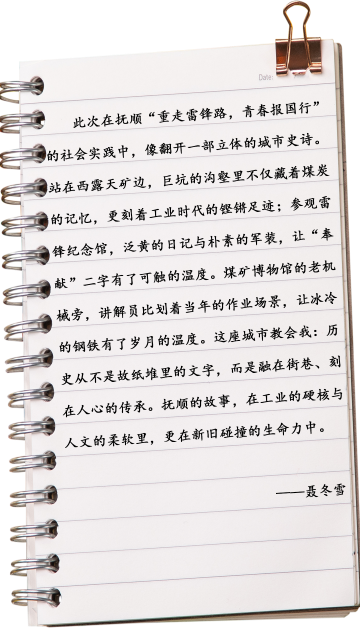 Date:
此次在抚顺“重走雷锋路，青春报国行”
的社会实践中，像翻开一部立体的城市史诗。
站在西露天矿边，巨坑的沟壑里不仅藏着煤炭
的记忆，更刻着工业时代的铿锵足迹；参观雷
锋纪念馆，泛黄的日记与朴素的军装，让“奉
献”二字有了可触的温度。煤矿博物馆的老机
械旁，讲解员比划着当年的作业场景，让冰冷
的钢铁有了岁月的温度。这座城市教会我：历
史从不是故纸堆里的文字，而是融在街巷、刻
在人心的传承。抚顺的故事，在工业的硬核与
人文的柔软里，更在新旧碰撞的生命力中。
——聂冬雪